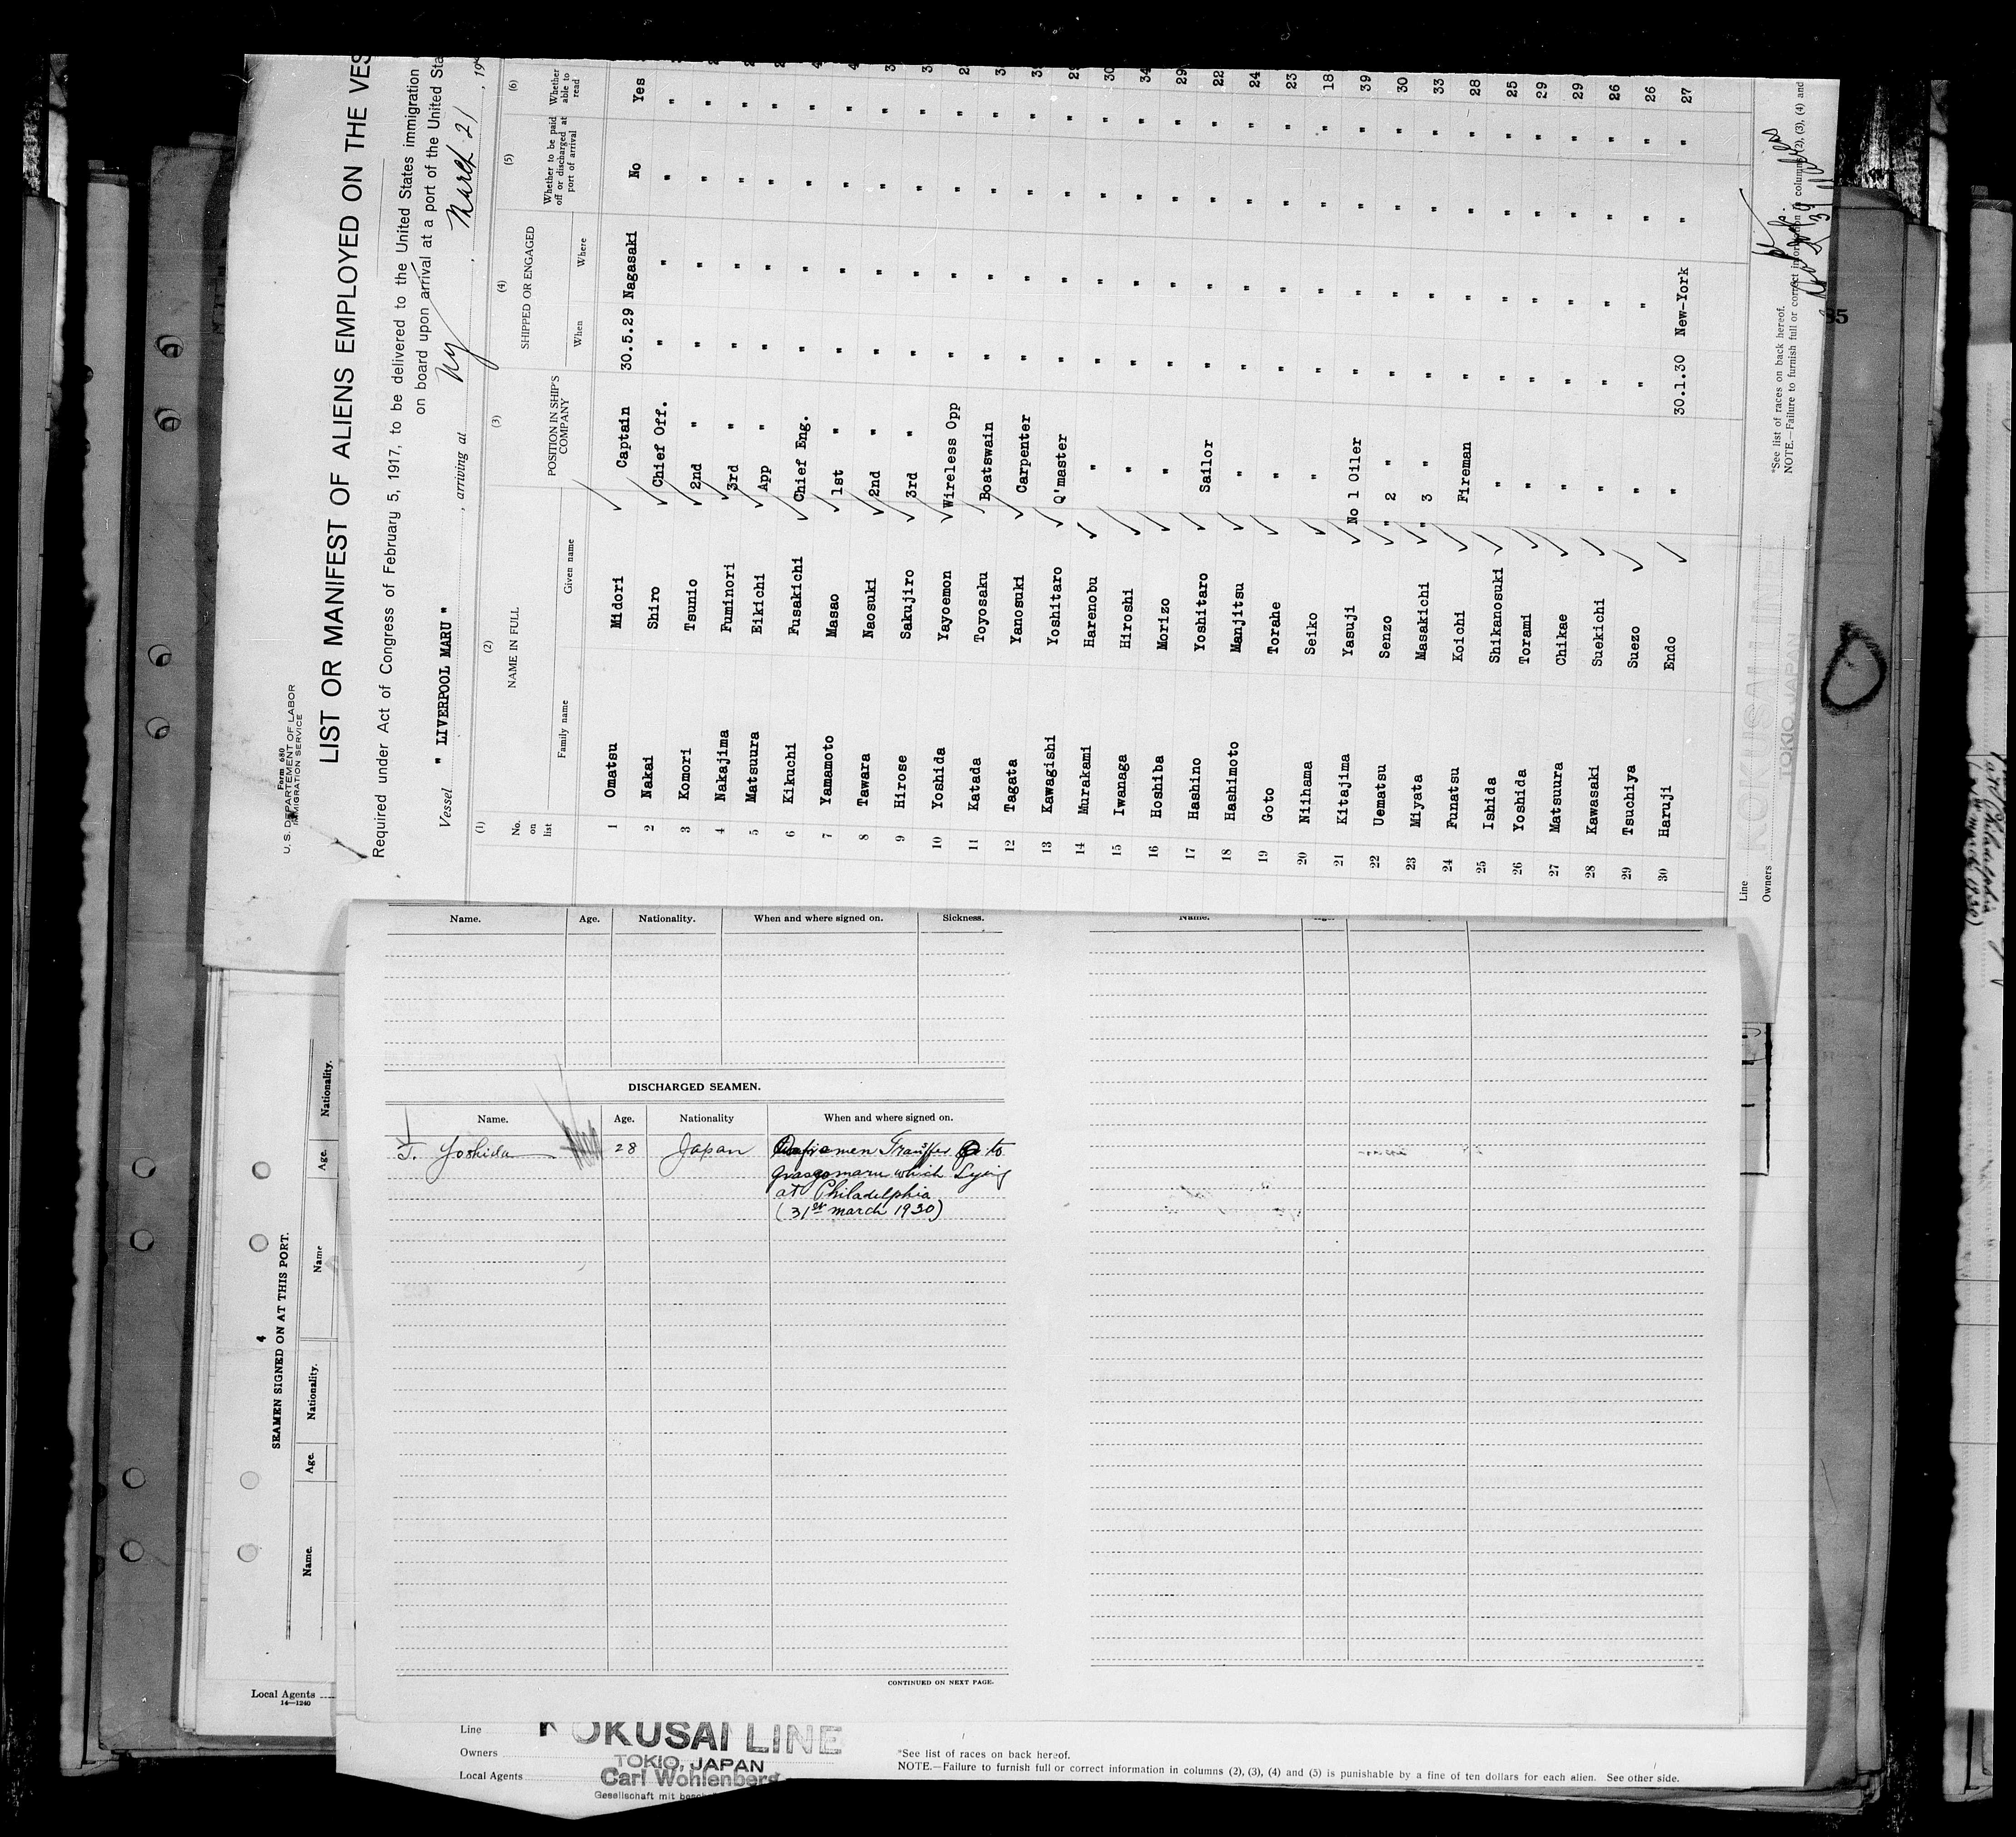 Form 680
U. S. DEPARTMENT OF LABOR
IMMIGRATION SERVICE
LIST OR MANIFEST OF ALIENS EMPLOYED ON THE VES
Required under Act of Congress of February 5, 1917, to be delivered to the United States immigration
on board upon arrival at a port of the United Sta
Vessel " LIVERPOOL MARU " , arriving at NY , March 21 , 19
(1) (2) (3) (4) (5) (6)
No. on list NAME IN FULL POSITION IN SHIP'S COMPANY SHIPPED OR ENGAGED Whether to be paid off or discharged at port of arrival Whether able to read
Family name Given name When Where
1 Omatsu Midori Captain 30.5.29 Nagasaki No Yes
2 Nakai Shiro Chief Off. " " " "
3 Komori Tsunio 2nd " " " " "
4 Nakajima Fuminori 3rd " " " " "
5 Matsuura Eikichi App " " " " "
6 Kikuchi Fusakichi Chief Eng. " " " "
7 Yamamoto Masao 1st " " " " "
8 Tawara Naosuki 2nd " " " " "
9 Hirose Sakujiro 3rd " " " " "
10 Yoshida Yayoemon Wireless Opp " " " "
11 Katada Toyosaku Boatswain " " " "
12 Tagata Yanosuki Carpenter " " " "
13 Kawagishi Yoshitaro Q'master " " " "
14 Murakami Harenobu " " " " "
15 Iwanaga Hiroshi " " " " " 30
16 Hoshiba Morizo " " " " " 34
17 Hashino Yoshitaro Sailor " " " " 29
18 Hashimoto Manjitsu " " " " " 22
19 Goto Torahe " " " " " 24
20 Niihama Seiko " " " " " 23
21 Kitajima Yasuji No 1 Oiler " " " " 18
22 Uematsu Senzo " 2 " " " " " 39
23 Miyata Masakichi " 3 " " " " " 30
24 Funatsu Koichi Fireman " " " " 33
25 Ishida Shikanosuki " " " " " 28
26 Yoshida Torami " " " " " 25
27 Matsuura Chikae " " " " " 29
28 Kawasaki Suekichi " " " " " 29
29 Tsuchiya Suezo " " " " " 26
30 Haruji Endo " 30.1.30 New-York " " 27
Line
Owners
KOKUSAI LINE
TOKIO, JAPAN
*See list of races on back hereof.
NOTE.—Failure to furnish full or correct information in columns (2), (3), (4) and
85
Name. Age. Nationality. When and where signed on. Sickness.
Name.
DISCHARGED SEAMEN.
Name. Age. Nationality When and where signed on.
T. Yoshida 28 Japan Transfer to
maru which Lying
at Philadelphia
(31st march 1930)
CONTINUED ON NEXT PAGE.
4
SEAMEN SIGNED ON AT THIS PORT.
Name. Age. Nationality. Name Age. Nationality.
Local Agents
14—1240
Line KOKUSAI LINE
Owners TOKIO, JAPAN
Local Agents Carl Wohlenberg
Gesellschaft mit
*See list of races on back hereof.
NOTE.—Failure to furnish full or correct information in columns (2), (3), (4) and (5) is punishable by a fine of ten dollars for each alien. See other side.
at Philadelphia